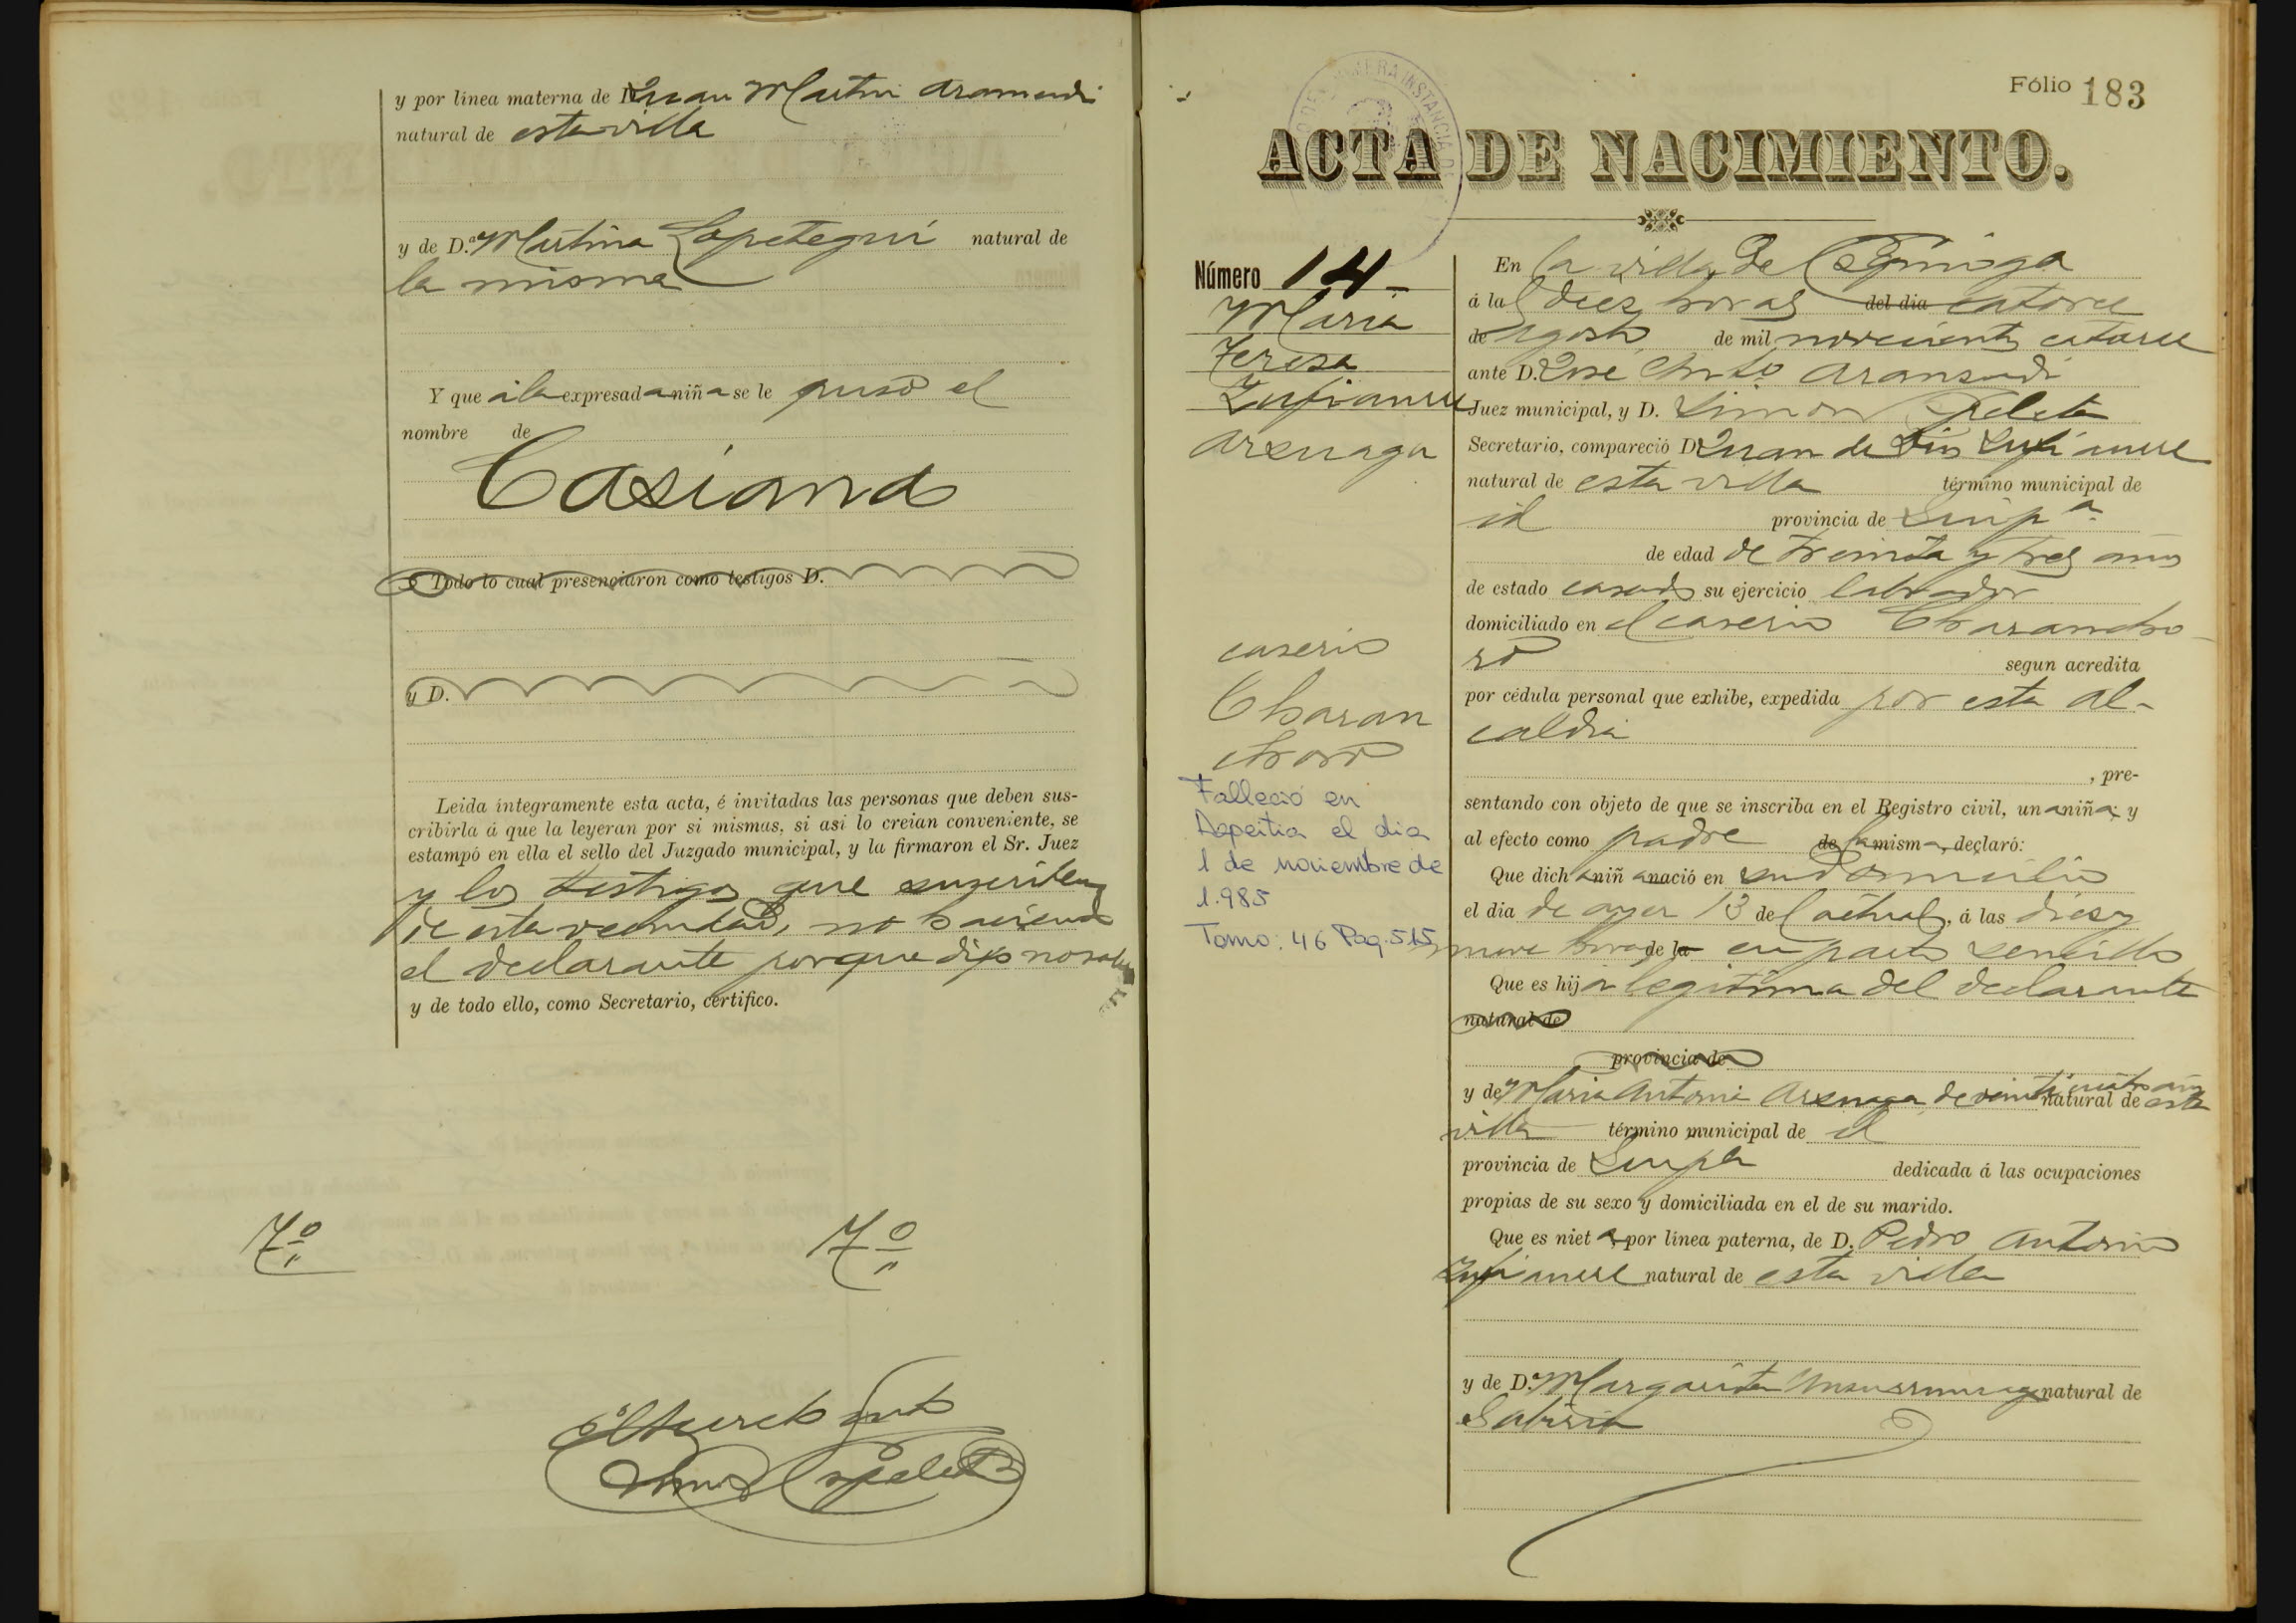 y por línea materna de Juan Martin Aramendi
natural de esta villa
y de D.ª Martina Lopetegui natural de
la misma
Y que á la expresada niña se le puso el
nombre de
Casiana
Todo lo cual presenciaron como testigos D.
y D.
Leida íntegramente esta acta, é invitadas las personas que deben sus-
cribirla á que la leyeran por si mismas, si asi lo creian conveniente, se
estampó en ella el sello del Juzgado municipal, y la firmaron el Sr. Juez
y los testigos que suscriben
de esta vecindad, no haciendo
el declarante porque dijo no saber
y de todo ello, como Secretario, certifico.
7º 7º
Fólio 183
ACTA DE NACIMIENTO.
Número 14
Maria
Teresa
Zufiaurre
Arzuaga
caserio
Charan
Fallecio en
Azpeitia el dia
1 de noviembre de
1.985
Tomo: 46 Pag. 515
En la villa de
á las diez horas del dia catorce
de Agosto de mil novecientos catorce
ante D. José
Juez municipal, y D. Simon
Secretario, compareció D. Juan de Dios Zufiaurre
natural de esta villa término municipal de
id provincia de Guip.ª
de edad de treinta y tres años
de estado casado su ejercicio labrador
domiciliado en el caserio
segun acredita
por cédula personal que exhibe, expedida por esta al-
caldia
, pre-
sentando con objeto de que se inscriba en el Registro civil, una niña; y
al efecto como padre de la misma, declaró:
Que dicha niña nació en su domicilio
el dia de ayer 13 del actual, á las diez y
nueve horas de la en parto sencillo
Que es hija legitima del declarante
natural de
provincia de
y de Maria Antonia Arzuaga de veinticuatro años natural de esta
villa término municipal de id
provincia de Guip.ª dedicada á las ocupaciones
propias de su sexo y domiciliada en el de su marido.
Que es nieta por línea paterna, de D. Pedro Antonio
Zufiaurre natural de esta villa
y de D.ª Margarita natural de